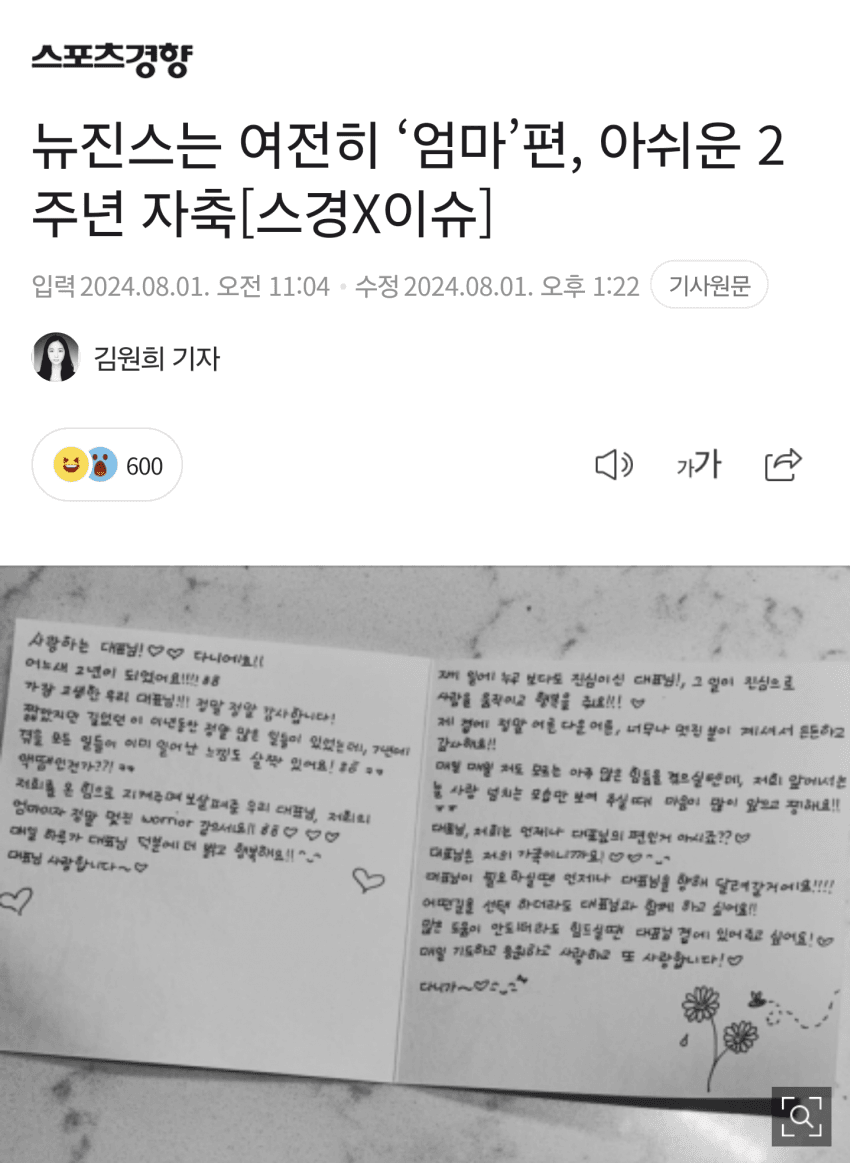 스포츠경향
뉴진스는 여전히 ‘엄마’편, 아쉬운 2
주년 자축[스경X이슈]
입력 2024.08.01. 오전 11:04 · 수정 2024.08.01. 오후 1:22 기사원문
김원희 기자
600
가가
사랑하는 대표님!♡♡ 다니에요!!
어느새 2년이 되었어요!!!!
가장 고생한 우리 대표님!!! 정말 정말 감사합니다!
짧았지만 길었던 이 이년동안 정말 많은 일들이 있었는데, 7년에
겪을 모든 일들이 이미 일어난 느낌도 살짝 있어요!
액땜인건가??!
저희를 온 힘으로 지켜주며 보살펴준 우리 대표님, 저희의
엄마이자 정말 멋진 worrior 같으세요!! ♡ ♡ ♡
매일 하루가 대표님 덕분에 더 밝고 행복해요!! ^_^
대표님 사랑합니다~♡
일에 누구 보다도 진심이신 대표님!, 그 일이 진심으로
사람을 움직이고 행복을 줘요!! ♡
제 곁에 정말 어른 다운 어른, 너무나 멋진 분이 계셔서 든든하고
감사해요!!
매일 매일 저도 모르는 아주 많은 힘듦을 겪으실텐데, 저희 앞에서는
늘 사랑 넘치는 모습만 보여 주실때 마음이 많이 아프고 찡해요!!
대표님, 저희는 언제나 대표님의 편인거 아시죠??♡
대표님은 저의 가족이니까요!♡♡^_^
대표님이 필요하실땐 언제나 대표님을 향해 달려갈거에요!!!!
어떤길을 선택 하더라도 대표님과 함께 하고 싶어요!!
많은 도움이 안되더라도 힘드실땐 대표님 곁에 있어주고 싶어요!♡
매일 기도하고 응원하고 사랑하고 또 사랑합니다!♡
다니가~♡